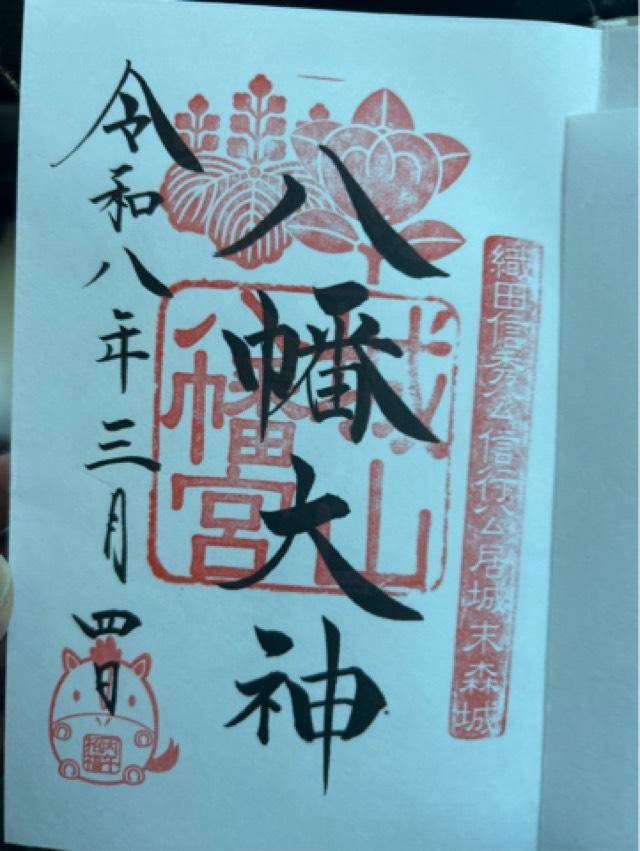 織田信秀公信行公居城末森城
八幡大神
城山
八幡宮
令和八年三月四日
丙午
招福